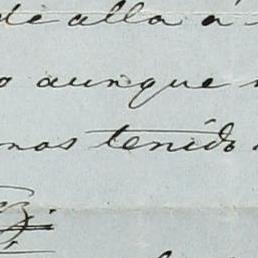 de alla á
o aunque
mos tenido